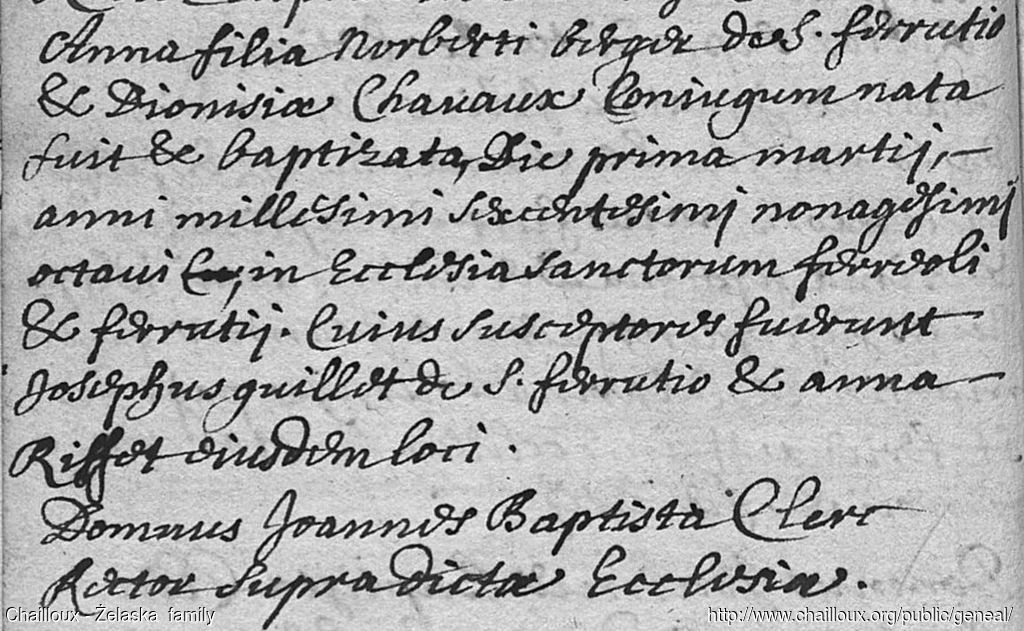 Anna filia Norberti berger de S. ferrutio
& Dionisiæ Chauaux Coniugum nata
fuit & baptizata, Die prima martij,
anni millesimi sexcentesimi nonagesimi
octaui in Ecclesia sanctorum ferreoli
& ferrutij. Cuius susceptores fuerunt
Josephus guillet de S. ferrutio & anna
Riffet eiusdem loci.
Domnus Joannes Baptista Clerc
Rector supra dictæ Ecclesiæ.
Chailloux - Żelaska family
http://www.chailloux.org/public/geneal/